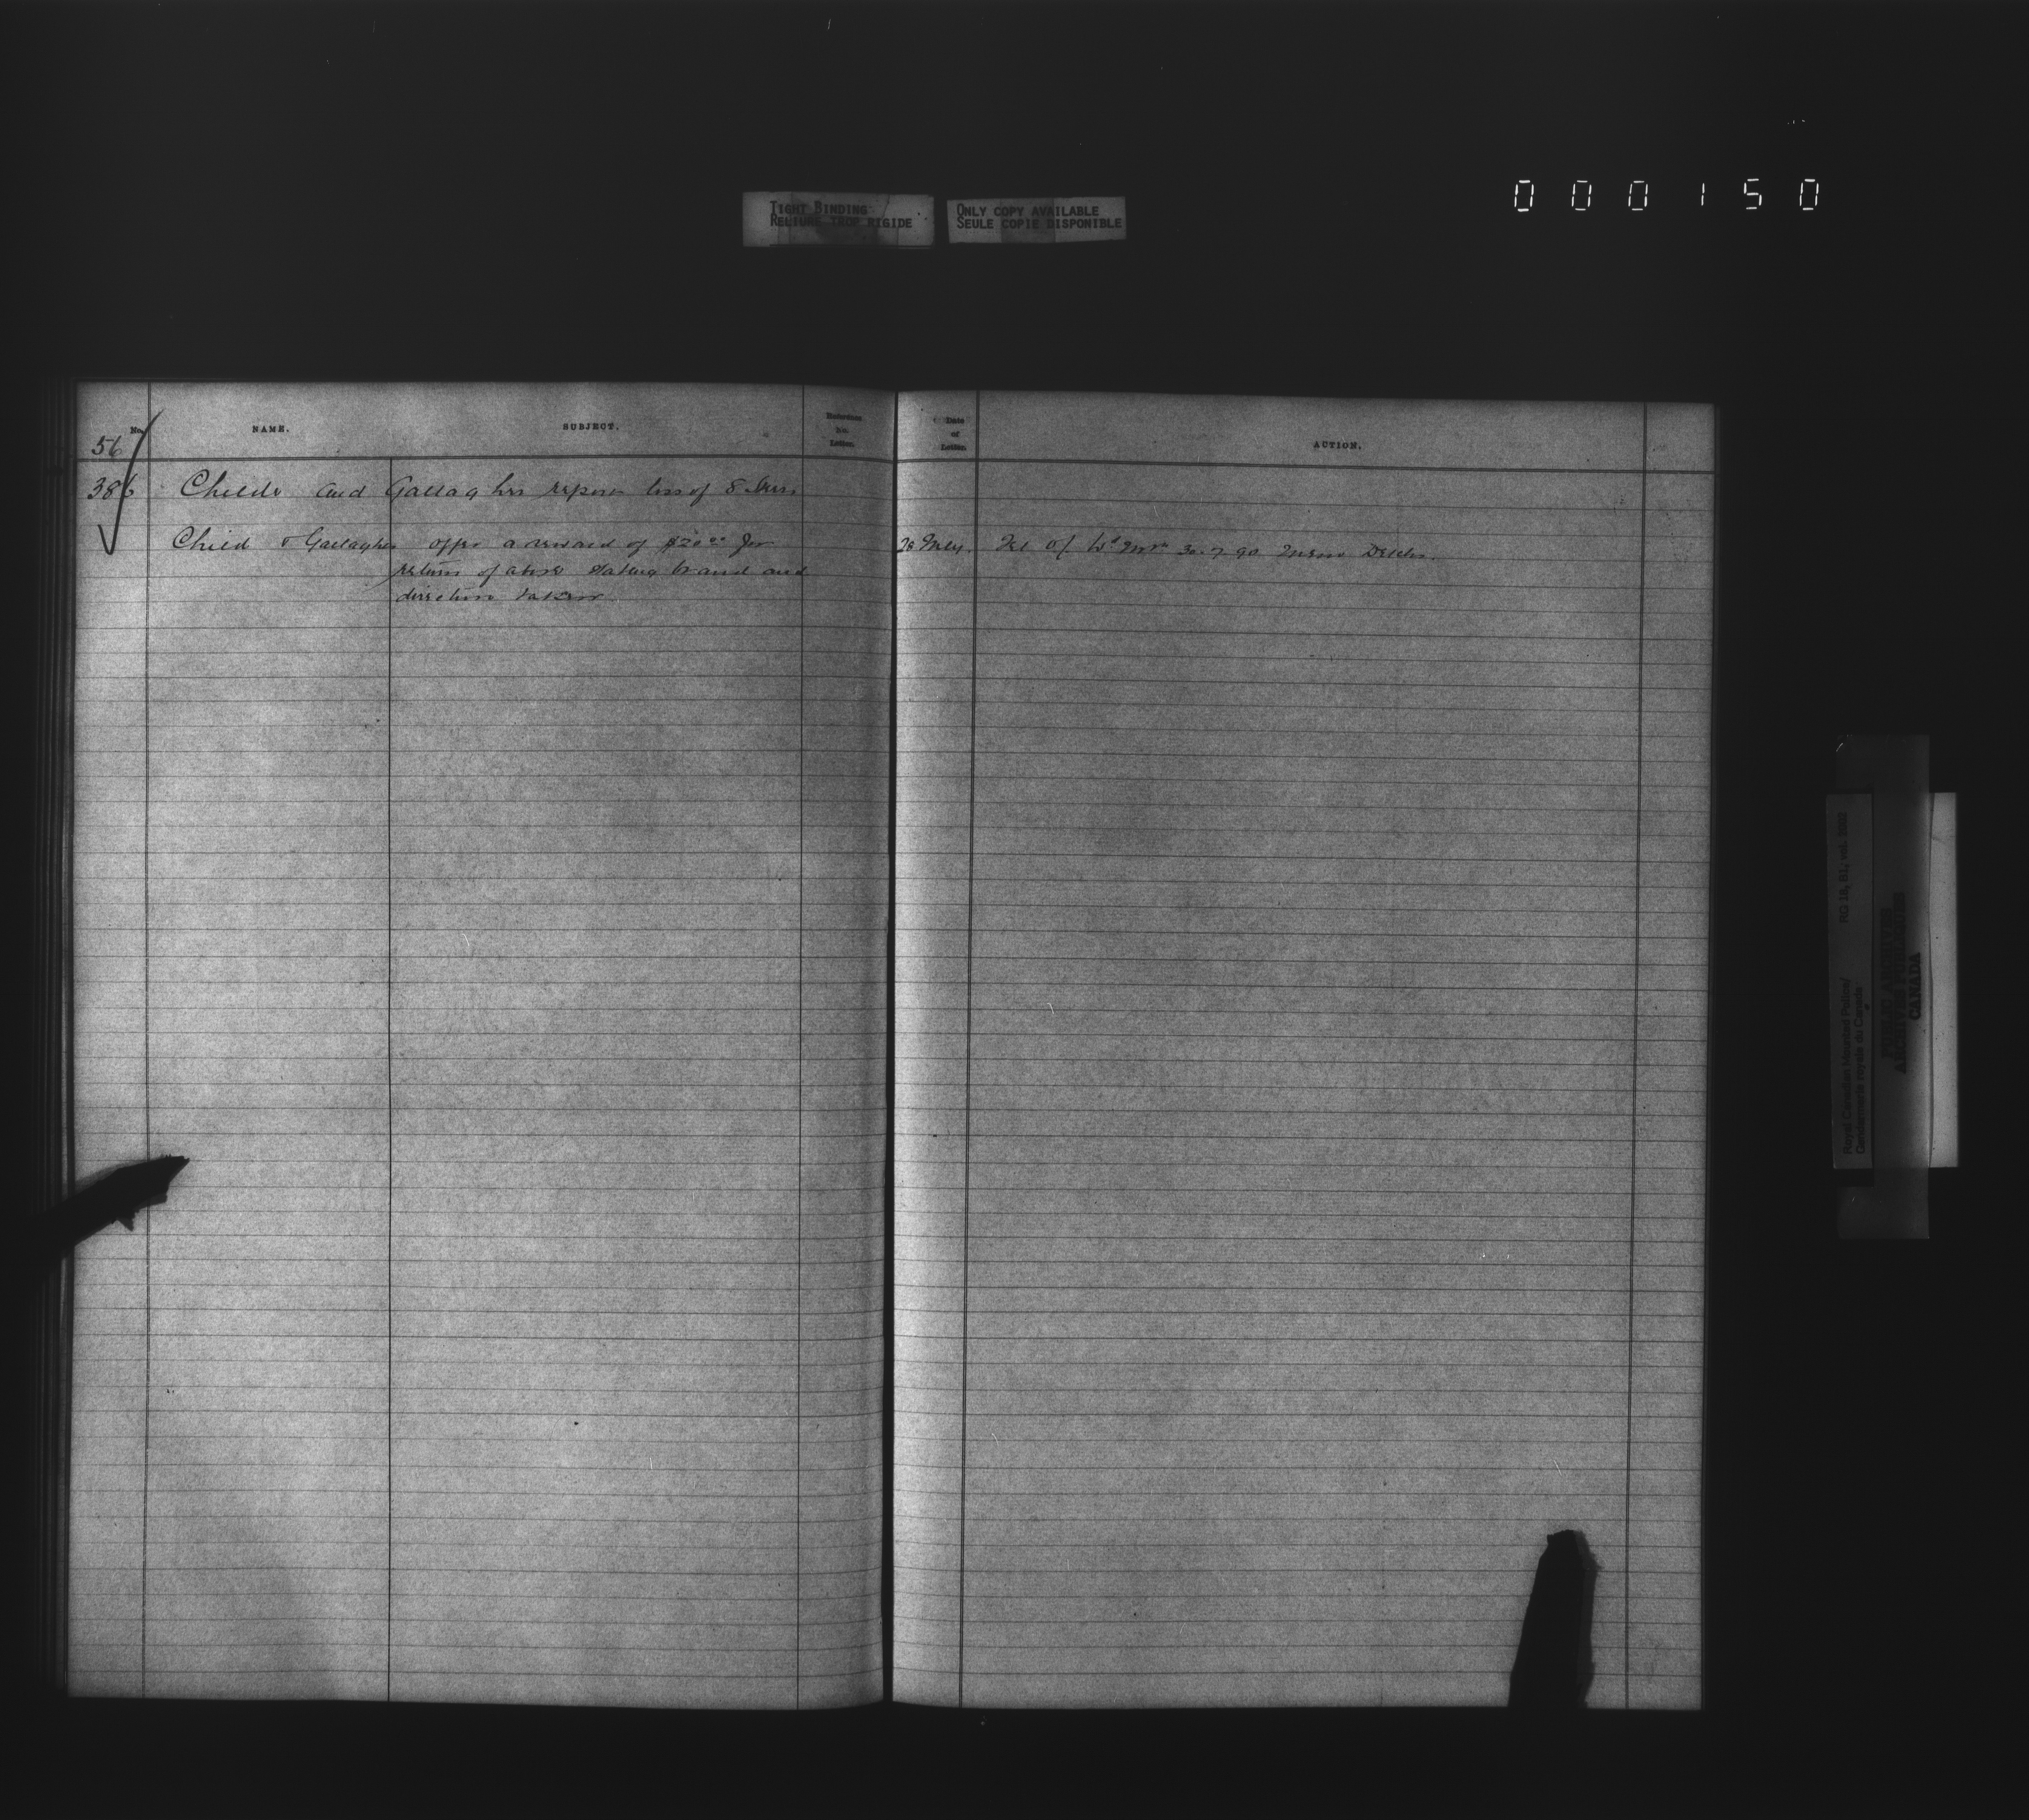 000150
TIGHT BINDING
RELIURE TROP RIGIDE
ONLY COPY AVAILABLE
SEULE COPIE DISPONIBLE
No.
NAME.
SUBJECT.
Reference
No.
Letter.
Date
of
Letter.
ACTION.
56
386 Childs and Gallaghers report loss of 8
Child & Gallagher offer a reward of $20.00 for
return of above stating brand and
direction taken
30.7.90
Royal Canadian Mounted Police/
Gendarmerie royale du Canada
RG 18, B1, vol.
PUBLIC ARCHIVES
ARCHIVES PUBLIQUES
CANADA